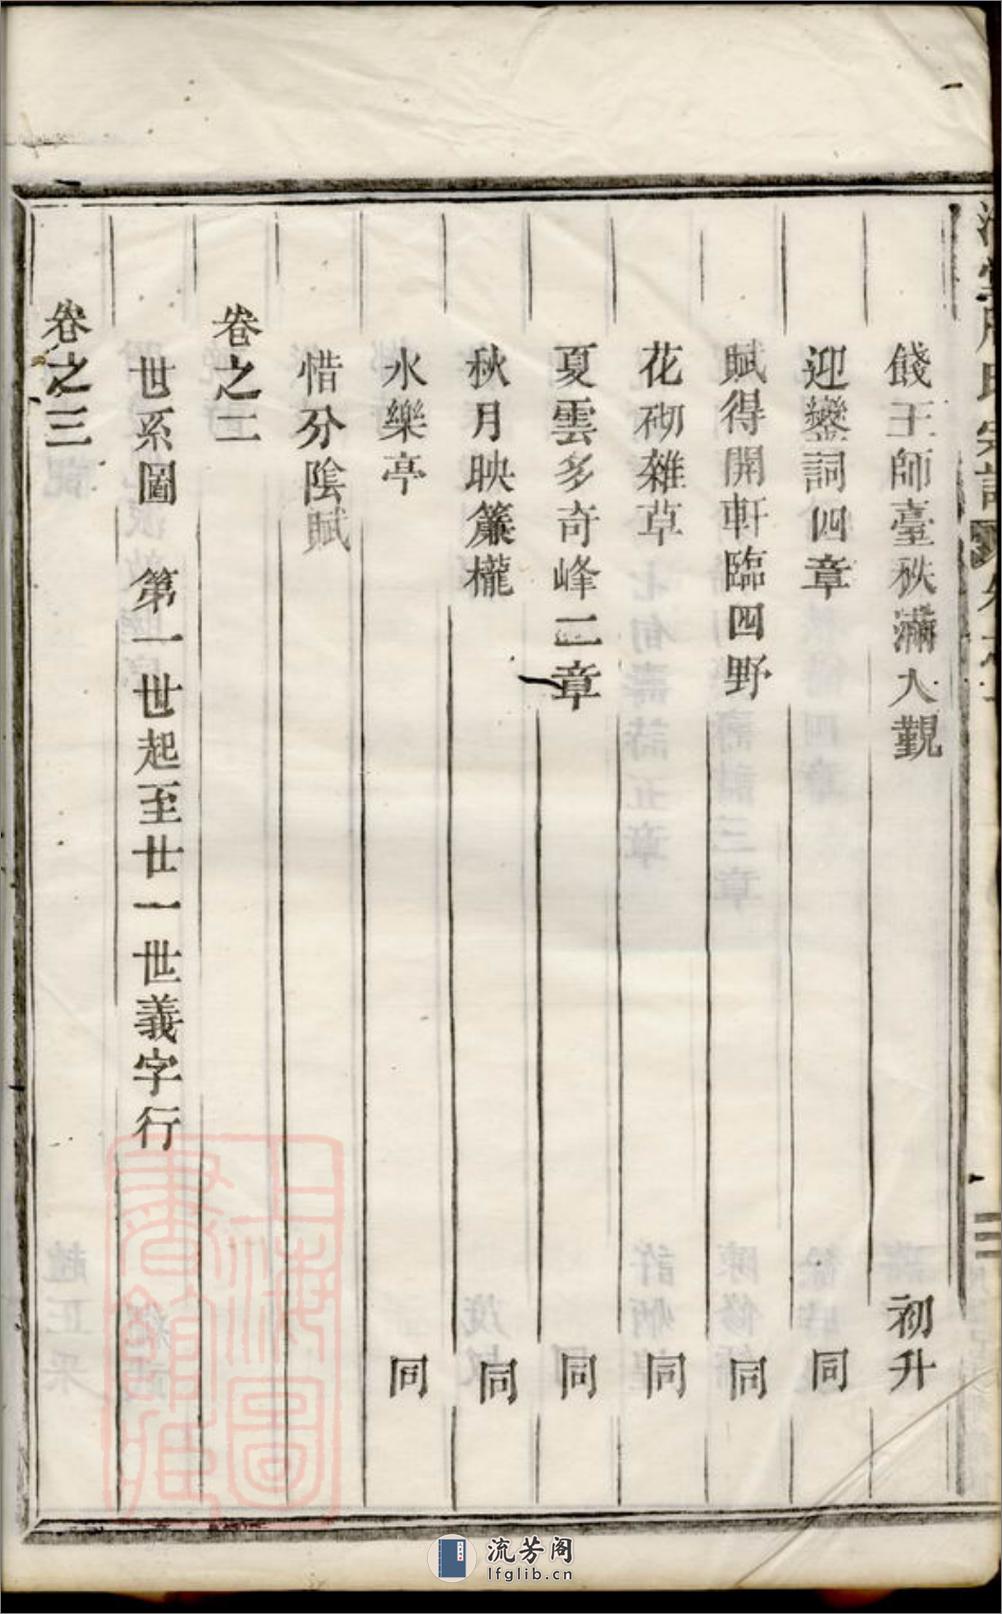 餞王師臺秩滿入覲 初升
迎鑾詞四章 同
賦得開軒臨四野 同
花砌雜草 同
夏雲多奇峰二章 同
秋月映簾櫳 同
水樂亭 同
惜分陰賦
卷之二
世系圖 第一世起至廿一世義字行
卷之三
上海圖書館藏
流芳阁
lfglib.cn